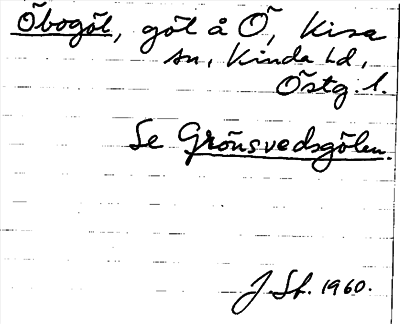 Öbogöl, göl å Ö, Kisa
sn, Kinda hd,
Östg. l.
Se Grönsvedsgölen.
J. Sh. 1960.